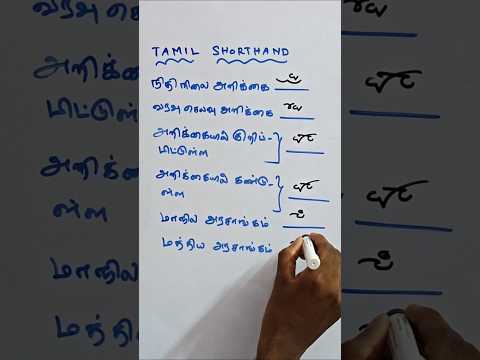 TAMIL SHORTHAND
நிதி நிலை அறிக்கை
வரவு செலவு அறிக்கை
அறிக்கையில் குறிப்-
பிட்டுள்ள
அறிக்கையில் கண்டு-
ள்ள
மாநில அரசாங்கம்
மத்திய அரசாங்கம்